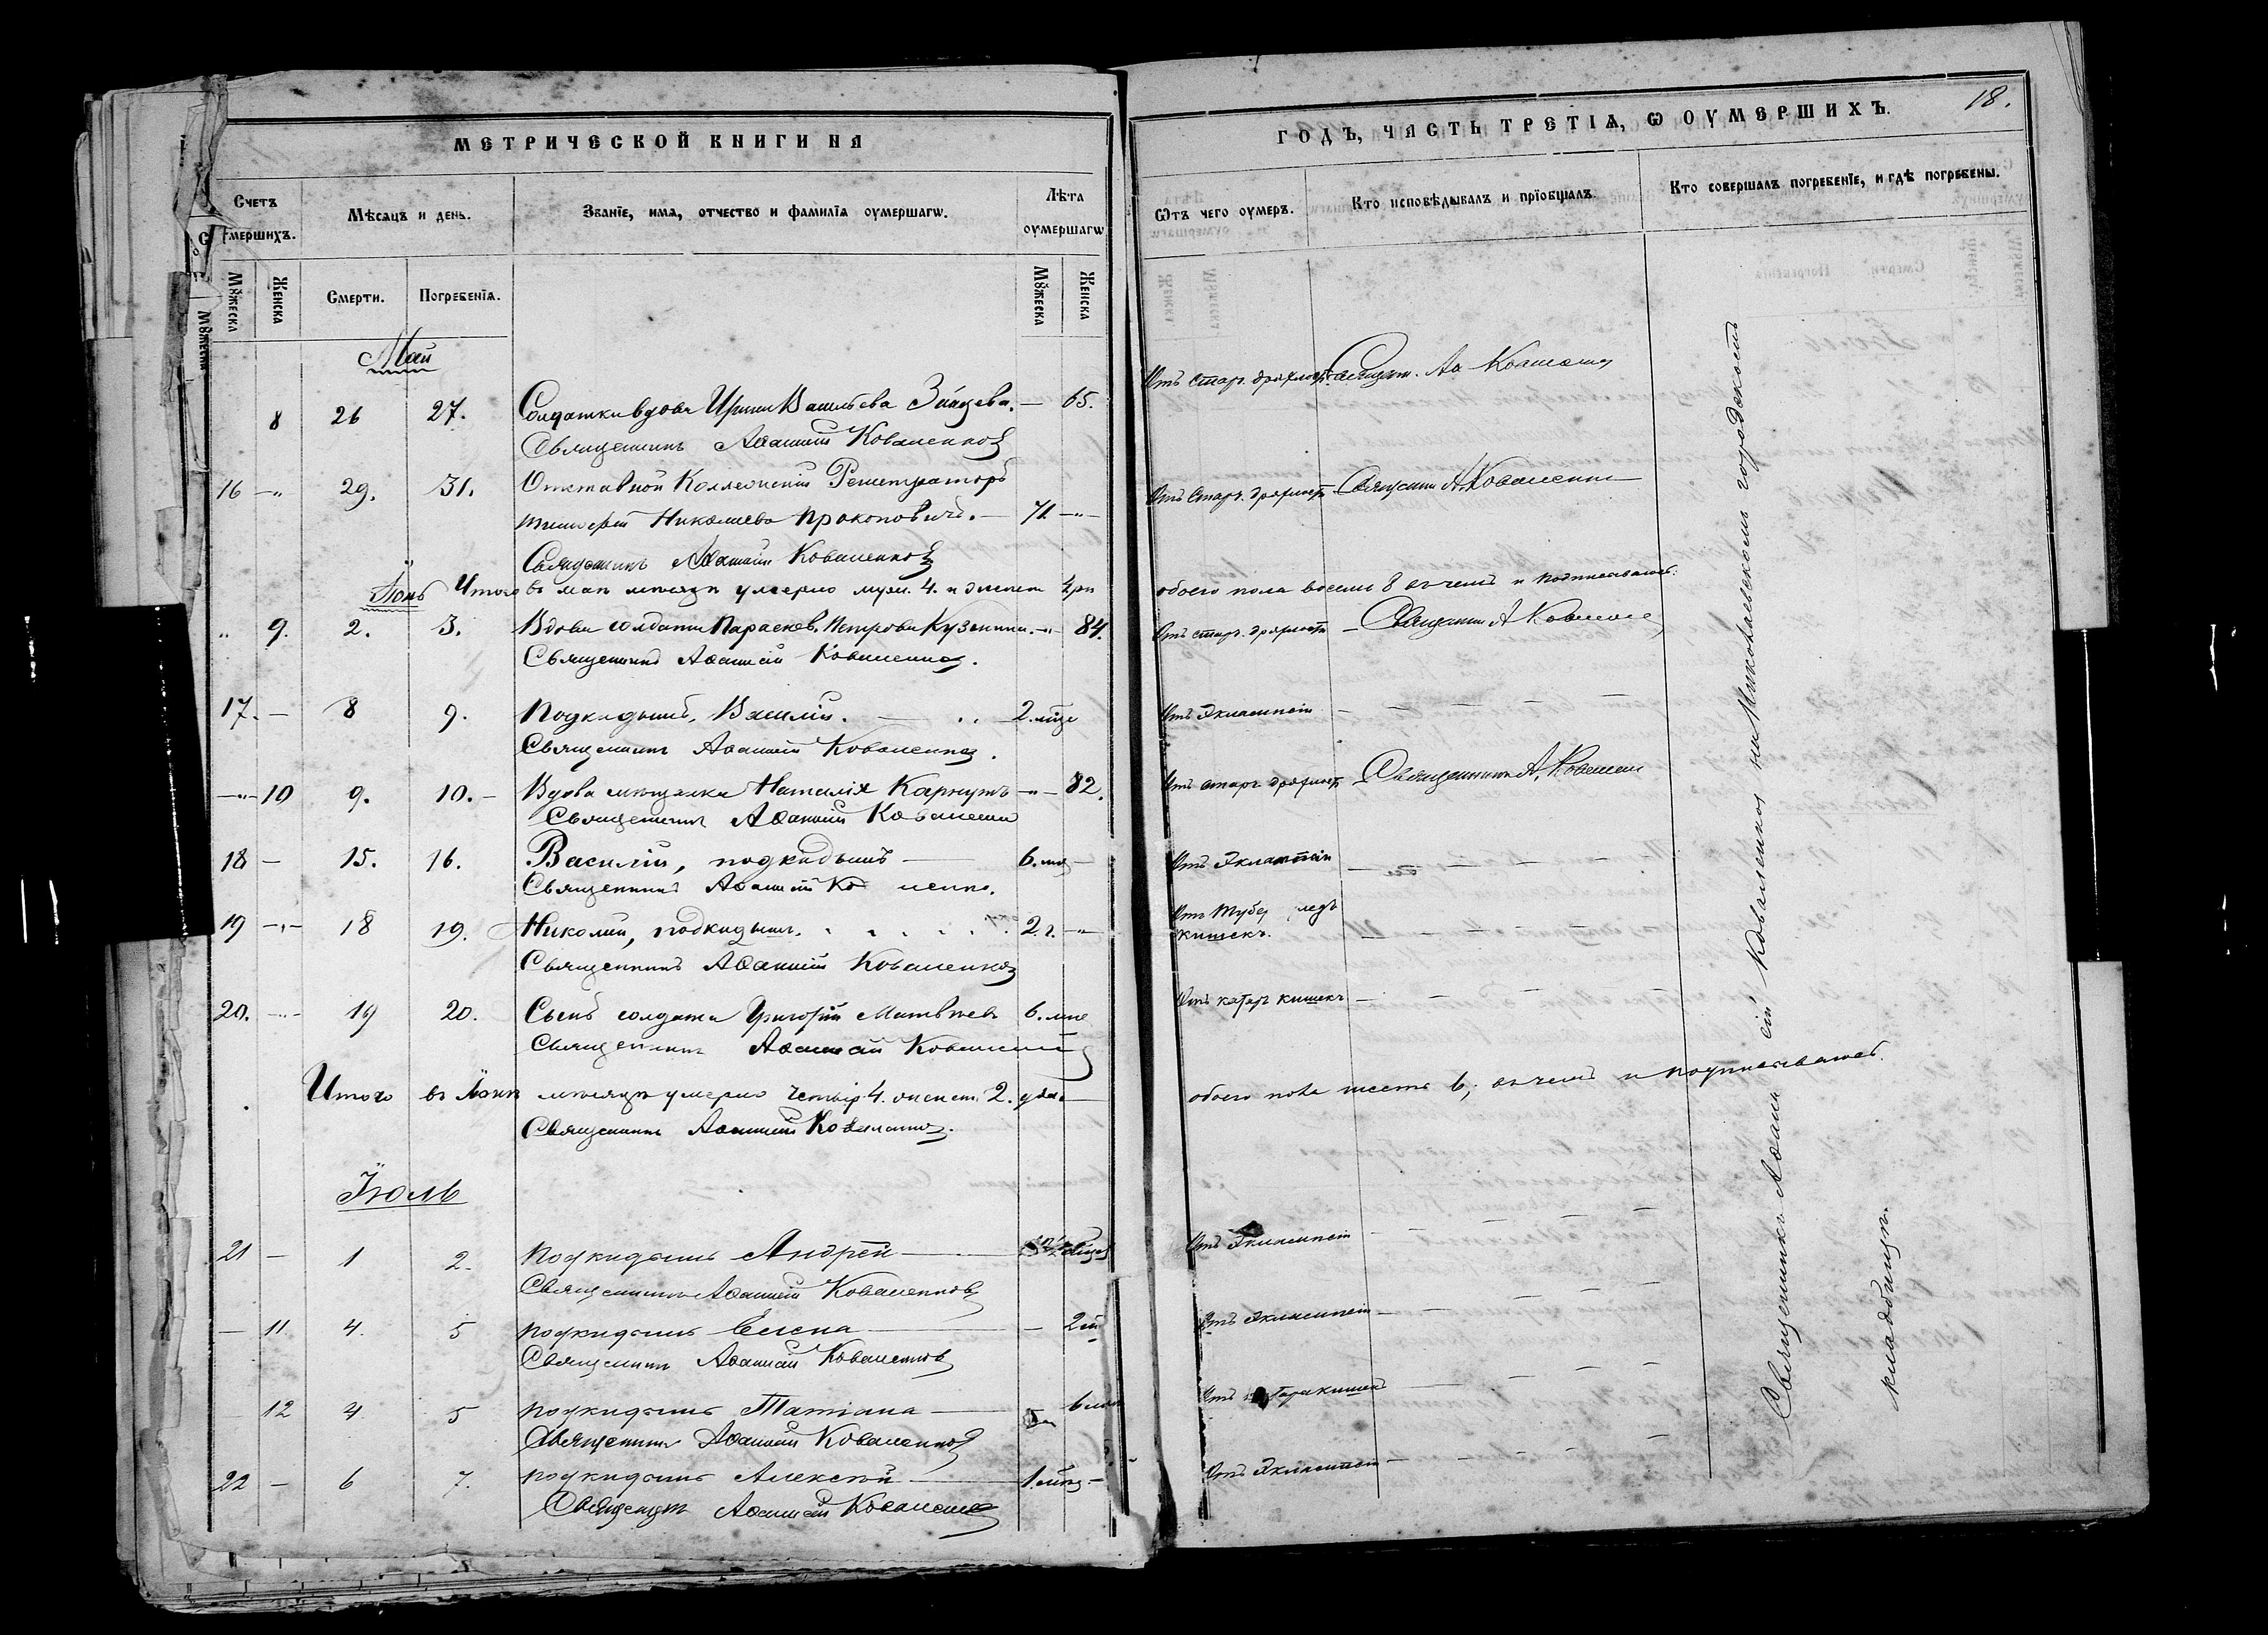 МЕТРИЧЕСКОЙ КНИГИ НА
ГОДЪ, ЧАСТЬ ТРЕТІѦ, Ѡ ОУМЕРШИХЪ.
18.
Счетъ умершихъ.
Мѣсѧцъ и день.
Званіе, имѧ, отчество и фамилїѧ оумершагѡ.
Лѣта оумершагѡ
Ѿтъ чего оумеръ.
Кто исповѣдывалъ и прїобщалъ.
Кто совершалъ погребенїе, и гдѣ погребены.
Мꙋжеска
Женска
Смерти.
Погребенїѧ.
Мꙋжеска
Женска
Май
8 26 27. Солдатка вдова Ирина Васильева Зайцева. — 65. Отъ стар. дряхлост. Священ. Аѳ Коваленко
Священникъ Аѳанасій Коваленковъ
16 —"— 29. 31. Отставной Коллежскій Регистраторъ
Тимофей Николаевъ Прокоповичъ. — 71 —"— Отъ Стар. дряхлост Священ А. Коваленко
Священникъ Аѳанасій Коваленковъ
Итого въ маѣ мѣсяцѣ умерло муж. 4. и женск 4 обоего пола восемь 8 въ чемъ и подписываюсь.
Іюнь
" 9. 2. 3. Вдова солдатка Параскев. Петрова Кузьмина. —"— 84. Отъ стар. дряхлости — Священ А Коваленко
Священникъ Аѳанасій Коваленко.
17. — 8 9. Подкидышъ, Василій. — 2. мѣс Отъ Эклампсіи — — — —
Священникъ Аѳанасій Коваленко.
—"— 10 9. 10. — Вдова мѣщанка Наталія Карнутъ —"— 82. Отъ стар дряхлост — Священникъ А. Ковален
Священникъ Аѳанасій Коваленко
18 — 15. 16. Василій, подкидышъ — 6. мѣс — Отъ Эклампсіи
Священникъ Аѳанасій Ко ленко.
19 —"— 18 19. Николай, подкидышъ. 2. г. —"— Отъ Тубер
кишекъ.
Священникъ Аѳанасій Коваленко
20. —"— 19 20. Сынъ солдата Григорій Матвѣевъ 6. мѣс Отъ катар кишекъ —
Священникъ Аѳанасій Коваленко
Итого въ Іюнѣ мѣсяцѣ умерло четыр 4. женск. 2. два — обоего пола шесть 6, въ чемъ и подписываюсь.
Священникъ Аѳанасій Коваленко.
Іюль
21 — 1 2. подкидышъ Андрей — Отъ Эклампсіи
Священникъ Аѳанасій Коваленковъ
— 11 4. 5 подкидышъ Елена — Отъ Эклампсіи —
Священникъ Аѳанасій Коваленковъ
12 4 5 подкидышъ Татіана — 6 мѣс Отъ катара кишекъ
Священникъ Аѳанасій Коваленковъ
22 — 6 7. подкидышъ Алексѣй — 1. мѣс — Отъ Эклампсіи —
Священникъ Аѳанасій Коваленко
Священникъ Аѳанасій Коваленко на Николаевскомъ городскомъ
кладбищѣ.